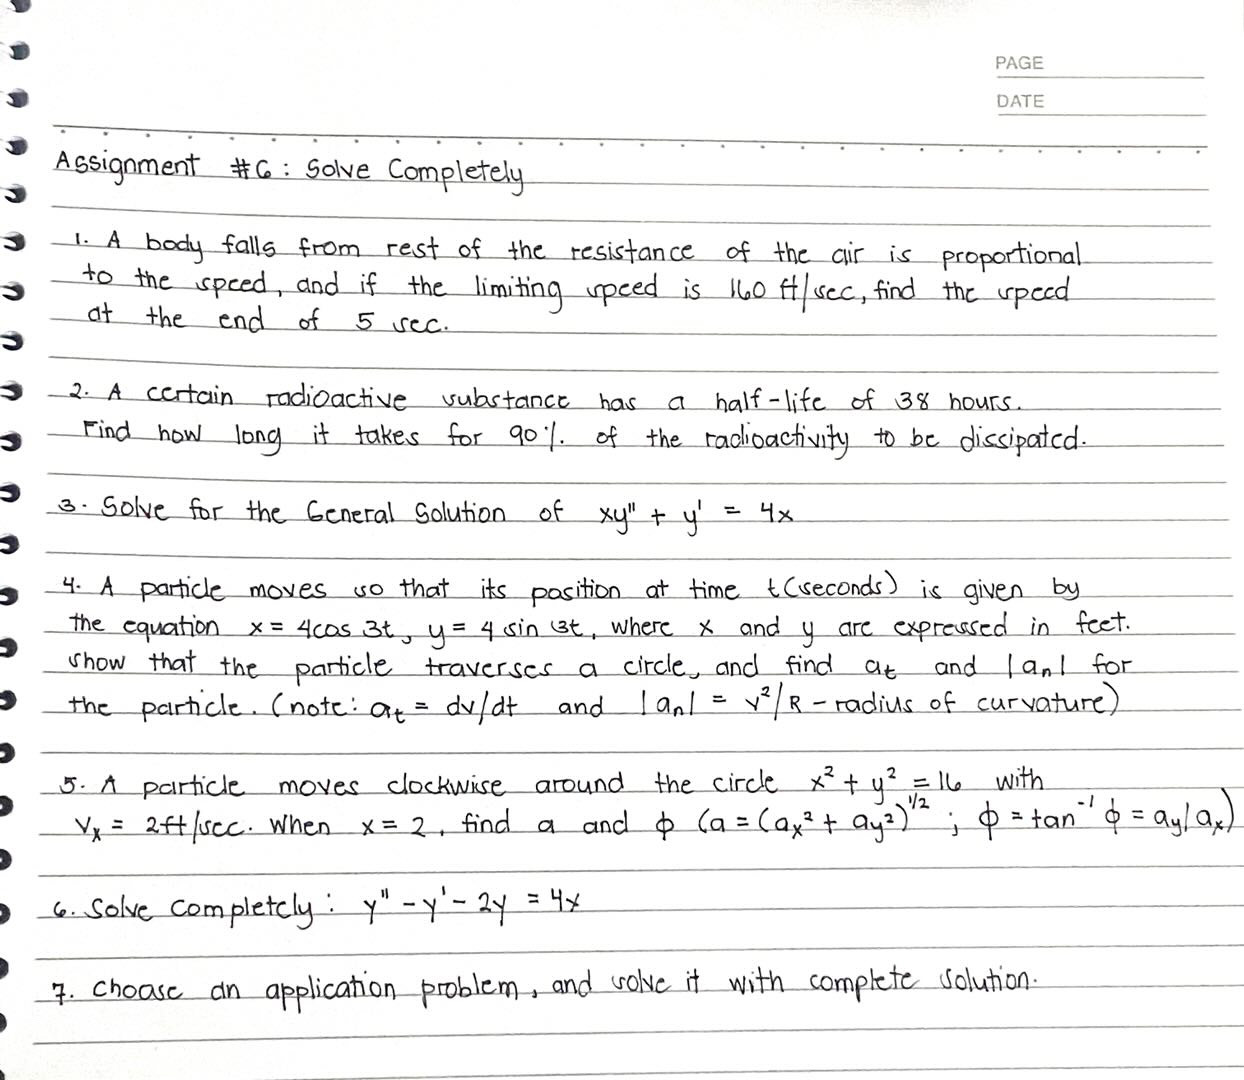 PAGE
DATE
Assignment #6: Solve Completely
1. A body falls from rest of the resistance of the air is proportional
to the speed, and if the limiting speed is 160 ft/sec, find the speed
at the end of 5 sec.
2. A certain radioactive substance has a half-life of 38 hours.
Find how long it takes for 90% of the radioactivity to be dissipated.
3. Solve for the General Solution of xy" + y' = 4x
4. A particle moves so that its position at time t(seconds) is given by
the equation x = 4cos 3t, y = 4 sin 3t, where x and y are expressed in feet.
Show that the particle traverses a circle, and find aₜ and |aₙ| for
the particle. (note: aₜ = dv/dt and |aₙ| = v²/R - radius of curvature)
5. A particle moves clockwise around the circle x² + y² = 16 with
Vₓ = 2ft/sec. When x = 2, find a and ϕ (a = (aₓ² + ay²)^1/2 ; ϕ = tan⁻¹ ϕ = ay/aₓ)
6. Solve completely: y" - y' - 2y = 4x
7. Choose an application problem, and solve it with complete solution.